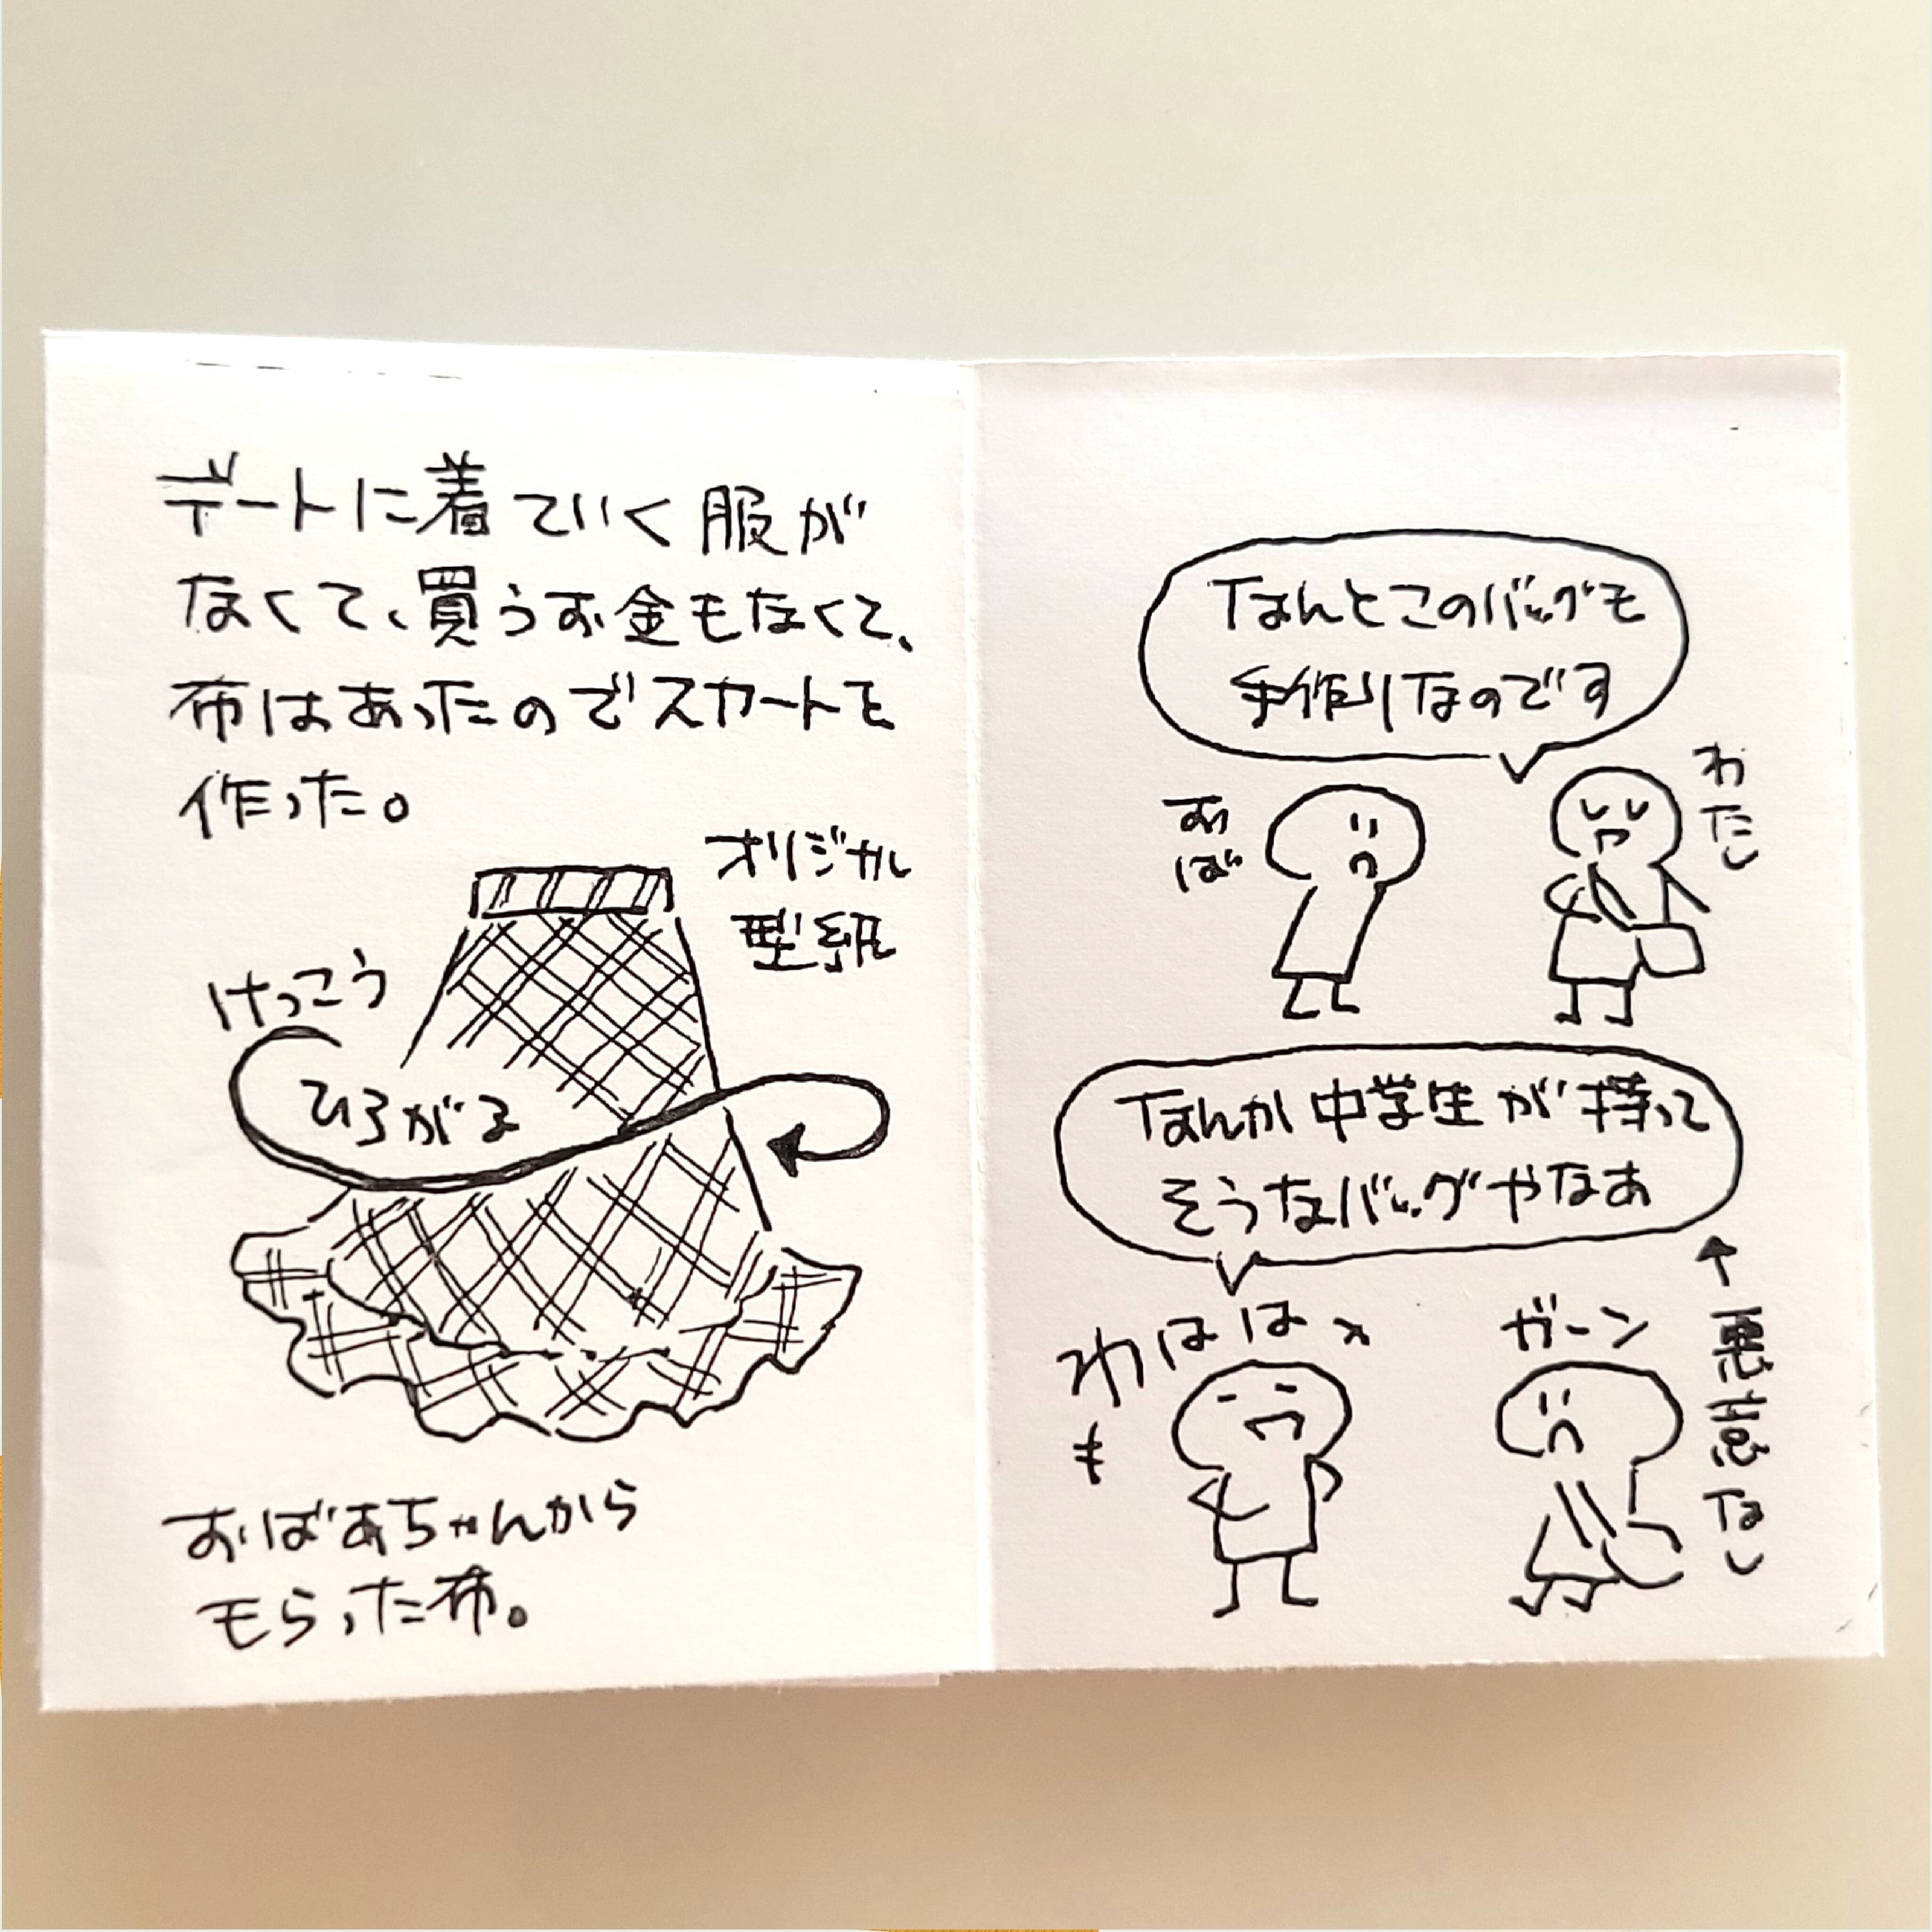 デートに着ていく服が
なくて、買うお金もなくて、
布はあったのでスカートを
作った。
オリジナル
型紙
けっこう
ひろがる
おばあちゃんから
もらった布。
なんとこのバッグも
手作りなのです
わたし
おば
なんか中学生が持って
そうなバッグやなあ
わははっ
ガーン
↑悪意なし